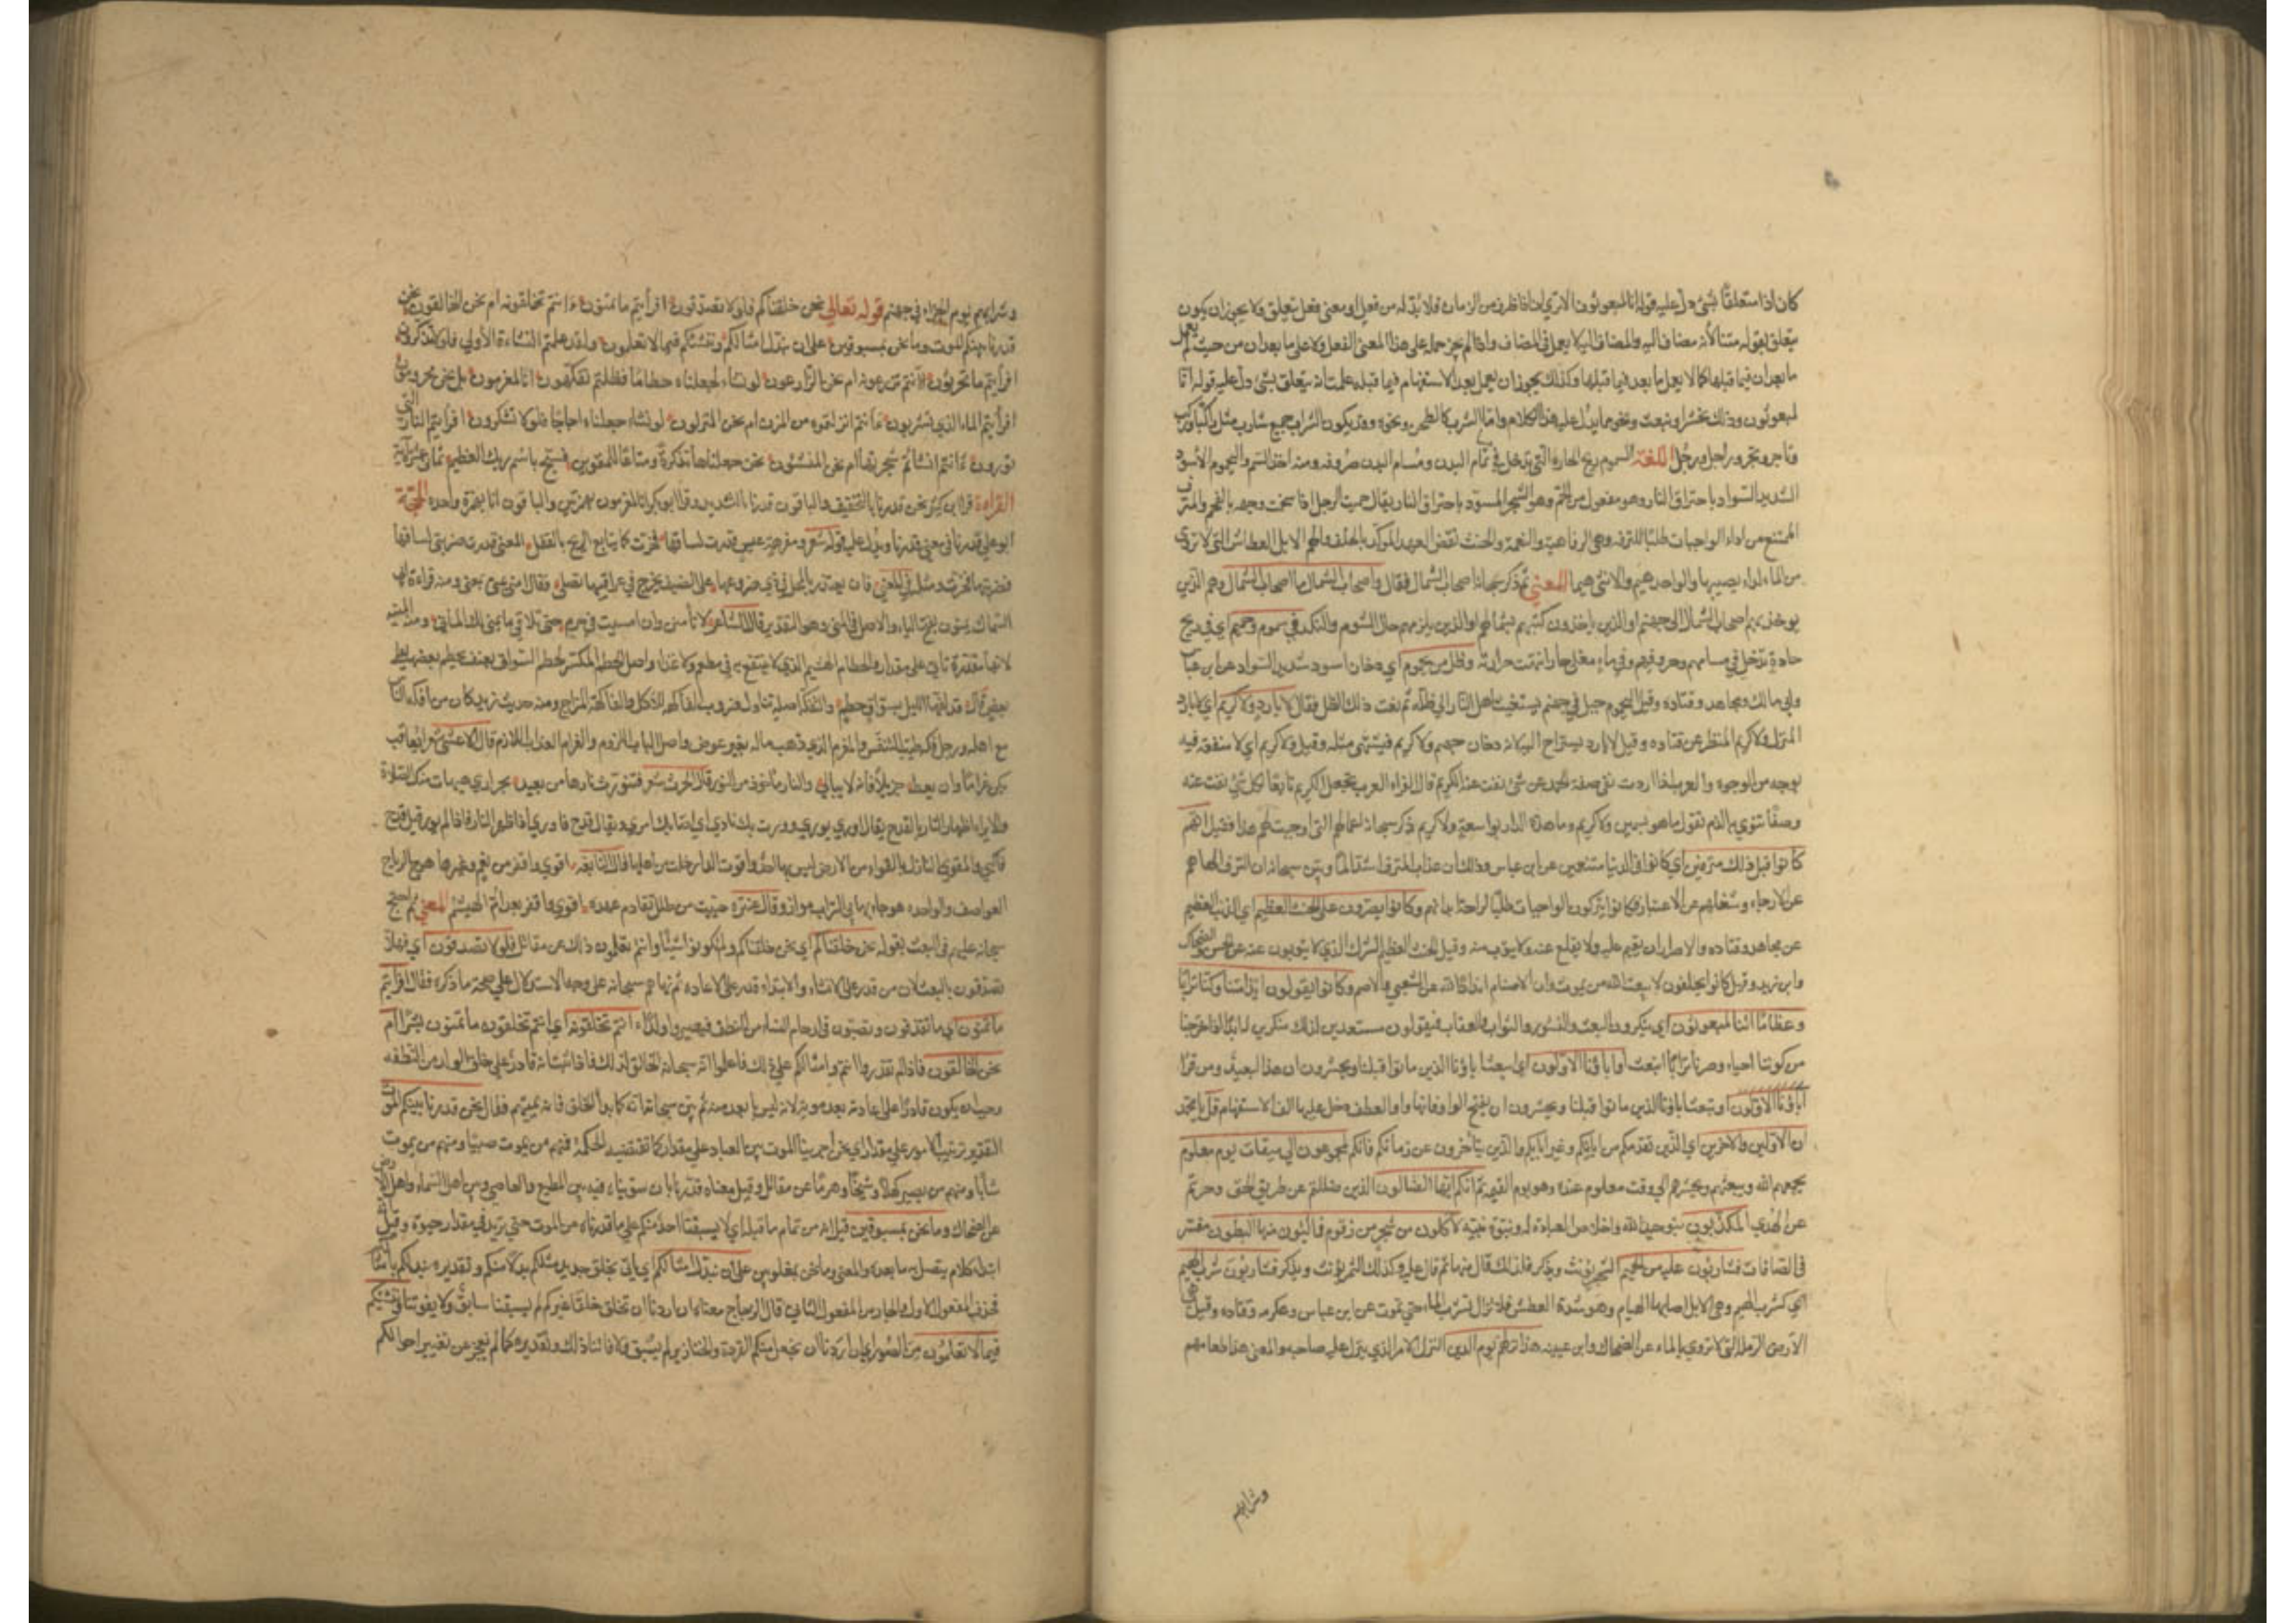 كان اذا متعلقًا بشئ دلّ عليه قوله انا لمبعوثون الا تري ان اذا ظرف من الزمان فلا بدّ له من فعل او معني فعل يتعلق به ولا يجوز ان يكون
يتعلق بقوله متنا لأنه مضاف اليه والمضاف اليه لا يعمل في المضاف واذا لم يجز حمله على هذا المعني الفعل ولا على ما بعد ان من حيث لم يعمل
ما بعد ان فيما قبلها كما لا يعمل ما بعد فيما قبلها وكذلك يجوز ان يعمل بعد الاستفهام فيما قبله علمت انه يتعلق بشئ دلّ عليه قوله انا
لمبعوثون وذلك نحشر او نبعث ونحو مما يدلّ عليه هذا الكلام واما الشرب كالطحن ونحوه وقد يكون الشرب جمع شارب مثل راكب وركب
وتاجر وتجر وراجل ورجل اللغة السموم ريح الحارة التي تدخل في تمام البدن ومسام البدن خروقه ومنه اخذ السم واليحموم الأسود
الشديد السواد باحتراق النار وهو مفعول من الحم وهو الشحم المسود باحتراق النار يقال حممت الرجل اذا سخمت وجهه بالفحم والمترف
الممتنع من اداء الواجبات طلبًا للترفه وهي الرفاهية والنعمة والحنث نقض العهد المؤكد بالحلف والهيم الابل العطاش التي لا تروى
من الماء لداء يصيبها والواحد هيم والانثى هيما المعني ثم ذكر سبحانه اصحاب الشمال فقال واصحاب الشمال ما اصحاب الشمال وهم الذين
يوخذ بهم اصحاب الشمال الى جهنم او الذين ياخذون كتبهم بشمالهم او الذين يلزمهم حال الشوم والنكد في سموم وحميم اي في ريح
حارة تدخل في مسامهم وخروقهم وفي ماء مغلي حار انتهت حرارته وظل من يحموم اي دخان اسود شديد السواد عن ابن عباس
وابي مالك ومجاهد وقتاده وقيل اليحموم جبل في جهنم يستغيث اهل النار الى ظله ثم نعت ذلك الظل فقال لا بارد ولا كريم اي لا بارد
المنزل ولا كريم المنظر عن قتاده وقيل لا بارد يستراح اليه لانه دخان جهنم ولا كريم فيشتهى مثله وقيل ولا كريم اي لا منفعة فيه
بوجه من الوجوه والعرب اذا ارادت نفى صفة الحمد عن شئ نفت عنه الكريم قال الفراء العرب تجعل الكريم تابعًا لكل شئ نفت عنه
وصفًا تنوي به الذم تقول ما هو بسمين ولا كريم وما هذه الدار بواسعة ولا كريم ثم ذكر سبحانه اعمالهم التي اوجبت لهم هذا فقيل انهم
كانوا قبل ذلك مترفين اي كانوا في الدنيا متنعمين عن ابن عباس وذلك ان عذاب المترف اشد الما وبين سبحانه ان الترف الهاهم
عن الازجار وشغلهم عن الاعتبار وكانوا يتركون الواجبات طلبًا لراحة ابدانهم وكانوا يصرون على الحنث العظيم اي الذنب العظيم
عن مجاهد وقتاده والاصرار ان يقيم عليه ولا يقلع عنه ولا يتوب منه وقيل الحنث العظيم الشرك الذي لا يتوبون عنه عن الحسن والضحاك
وابن زيد وقيل كانوا يحلفون لا يبعث الله من يموت وان الاصنام انداد الله عن الشعبي والاصم وكانوا يقولون ائذا متنا وكنا ترابًا
وعظامًا ائنا لمبعوثون اي ينكرون البعث والنشور والثواب والعقاب فيقولون مستبعدين لذلك منكرين له ائذا خرجنا
من كوننا احياء وصرنا ترابًا انبعث او اباؤنا الاوّلون اي ايبعثا باؤنا الذين ماتوا قبلنا ويحشرون ان هذا لبعيد ومن قرأ
أباؤنا الاوّلون او تبعث اباؤنا الذين ماتوا قبلنا ويحشرون ان بفتح الواو فانها واو العطف دخل عليها الف الاستفهام قل يا محمد
ان الاوّلين والاخرين اي الذين تقدمكم من ابائكم وغير ابائكم والذين يتاخرون عن زمانكم فانكم لمجموعون الى ميقات يوم معلوم
يجمعهم الله ويبعثهم ويحشرهم الى وقت معلوم عنده وهو يوم القيمه ثم انكم ايها الضالون الذين ضللتم عن طريق الحق وجرتم
عن الهدى المكذبون بتوحيد الله واخلاص العبادة له ونبوة نبيّه لآكلون من شجر من زقوم فمالئون منها البطون مفسّر
في الصافات فشاربون عليه من الحميم الشجر يؤنث ويذكر فلذلك قال منها ثم قال عليه وكذلك الثمر يؤنث ويذكر فشاربون شرب الهيم
اي كشرب الهيم وهي الابل اصابها الهيام وهو شدة العطش فلا تزال تشرب الماء حتى تموت عن ابن عباس وعكرمه وقتاده وقيل هي
الارض الرملة التي لا تروي بالماء عن الضحاك وابن عيينه هذا نزلهم يوم الدين النزل الامر الذي ينزل عليه صاحبه والمعنى هذا طعامهم
وشرابهم
وشرابهم يوم الجزاء في جهنم قوله تعالي نحن خلقناكم فلولا تصدّقون افرأيتم ما تمنون ءانتم تخلقونه ام نحن الخالقون نحن
قدرنا بينكم الموت وما نحن بمسبوقين على ان نبدّل امثالكم وننشئكم فيما لا تعلمون ولقد علمتم النشاءة الأولي فلولا تذكرون
افرأيتم ما تحرثون ءانتم تزرعونه ام نحن الزّارعون لو نشاء لجعلناه حطامًا فظلتم تفكهون انا لمغرمون بل نحن محرومون
افرأيتم الماء الذي تشربون ءانتم انزلتموه من المزن ام نحن المنزلون لو نشاء جعلناه اجاجًا فلولا تشكرون افرأيتم النار التي
تورون ءانتم انشأتم شجرتها ام نحن المنشئون نحن جعلناها تذكرة ومتاعًا للمقوين فسبّح باسم ربك العظيم ثماني عشرة آية
القراءة قرأ ابن كثير نحن قدرنا بالتخفيف والباقون قدرنا بالتشديد وقرأ ابو بكر ائنا لمغرمون بهمزتين والباقون انا بهمزة واحده الحجة
ابو علي قدرنا في معني قدّرنا ويدل عليه قوله شعر ومفرهة عنس قدرت لساقها فخرت كما تتايع الريح بالقفل المعني قدرت ضربتي لساقها
فضربتها فخرت ومثل في المعني فان تعتذر بالمحل في ذي ضروعها على الضيف يجرح في عراقيبها نصلي وقال امني ومنى بمعنى ومنه قراءة ابي
السماك تمنون بفتح التاء والاصل في المنى وهو التقدير قال الشاعر لا تأمنن وان امسيت في حرم حتى تلاقي ما يمني لك الماني ومنه المنيّة
لانها مقدرة تاتي على مقدار والحطام الهشيم الذي لا ينتفع به في مطعم ولا غذاء واصل الحطم الكسر لحطم السواق بعنف يحطم بعضها على
بعض قال قد لفّها الليل بسوّاق حطم والتفكه اصله تناول ضروب الفاكهه للأكل والفاكهة المزاح ومنه حديث زيد كان من افكه الناس
مع اهله ورجل فكه طيّب النفس والمغرم الذي ذهب ماله بغير عوض واصل الباب اللزوم والغرام العذاب اللازم قال الاعشى شعر ان يعاقب
يكن غرامًا وان يعط جزيلاً فانه لا يبالي والنار ماخوذ من النور قال الحرث شعر فتنورت نارها من بعيد بحرازى هيهات منك الصلاة
والايراء اظهار النار بالقدح يقال اوري يوري ووريت بك زنادي اي اضاء بك امري ويقال قدح فاوري اذا ظهر النار فاذا لم يور قيل قدح
فاكبى والمقوى النازل بالقواء من الارض ليس بها احد واقوت الدار خلت من اهلها قال النابغه اقوي واقفر من نعم وغيرها هوج الرياح
العواصف والواحده هوجاء بهابي التراب موار وقال عنتره حييت من طلل تقادم عهده اقوي واقفر بعد أم الهيثم المعني ثم احتج
سبحانه عليهم في البعث بقوله نحن خلقناكم اي نحن خلقناكم ولم تكونوا شيئًا وانتم تعلمون ذلك عن مقاتل فلولا تصدقون اي فهلا
تصدقون بالبعث لان من قدر على الانشاء والابتداء قدر على الاعاده ثم نبّههم سبحانه على وجه الاستدلال علي صحة ما ذكره فقال افرأيتم
ما تمنون اي ما تقذفون وتصبّون في ارحام النساء من النطف فيصير ولدًا ءانتم تخلقونه اي ءانتم تخلقون ما تمنون بشرًا ام
نحن الخالقون فاذا لم تقدروا انتم وامثالكم علي ذلك فاعلموا انّ الله سبحانه الخالق لذلك فاذا ثبت انه قادر علي خلق الولد من النطفه
وجب ان يكون قادرًا على اعادته بعد موته لانه ليس بابعد منه ثم بيّن سبحانه انه كما بدأ الخلق فانه يميتهم فقال نحن قدرنا بينكم الموت
التقدير ترتيب الامور على مقدار اي نحن اجرينا الموت بين العباد علي مقدار كما تقتضيه الحكمة فمنهم من يموت صبيًا ومنهم من يموت
شابًا ومنهم من يصير كهلاً وشيخًا وهرمًا عن مقاتل وقيل معناه قدرنا بان سوّينا فيه بين المطيع والعاصي وبين اهل السماء واهل الارض
عن الضحاك وما نحن بمسبوقين قيل انه من تمام ما قبله اي لا يسبقنا احد منكم علي ما قدرناه من الموت حتى يزيد في مقدار حيوته وقيل انه
ابتداء كلام يتصل به ما بعده والمعنى وما نحن بمغلوبين على ان نبدّل امثالكم اي ناتي بخلق جديد مثلكم بدلاً منكم وتقديره نبدلكم بامثالكم
فحذف المفعول الاول والجار من المفعول الثاني قال الزجاج معناه ان اردنا ان نخلق خلقًا غيركم لم يسبقنا سابق ولا يفوتنا وننشئكم
فيما لا تعلمون من الصور اي ان اردنا ان نجعل منكم القردة والخنازير لم نسبق ولا فاتنا ذلك وتقديره كما لم نعجز عن تغيير احوالكم